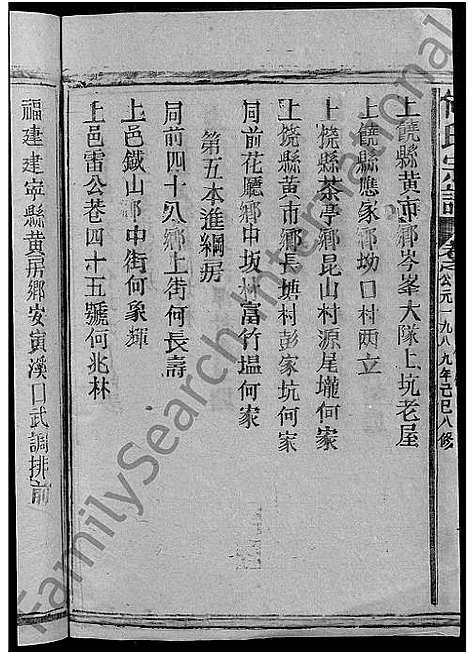 何氏宗譜 卷之 公元一九八九年己巳八修
上饒縣黃市鄉岑峯大隊上坑老屋
上饒縣應家鄉坳口村两立
上饒縣茶亭鄉昆山村源尾壠何家
上饒縣黃市鄉長塘村彭家坑何家
同前花廳鄉中坂林富竹塭何家
第五本進綱房
同前四十八鄉上街何長壽
上邑鐵山鄉中街何象輝
上邑雷公巷四十五號何兆林
福建建寧縣黃房鄉安寅溪口武調排前
FamilySearch International